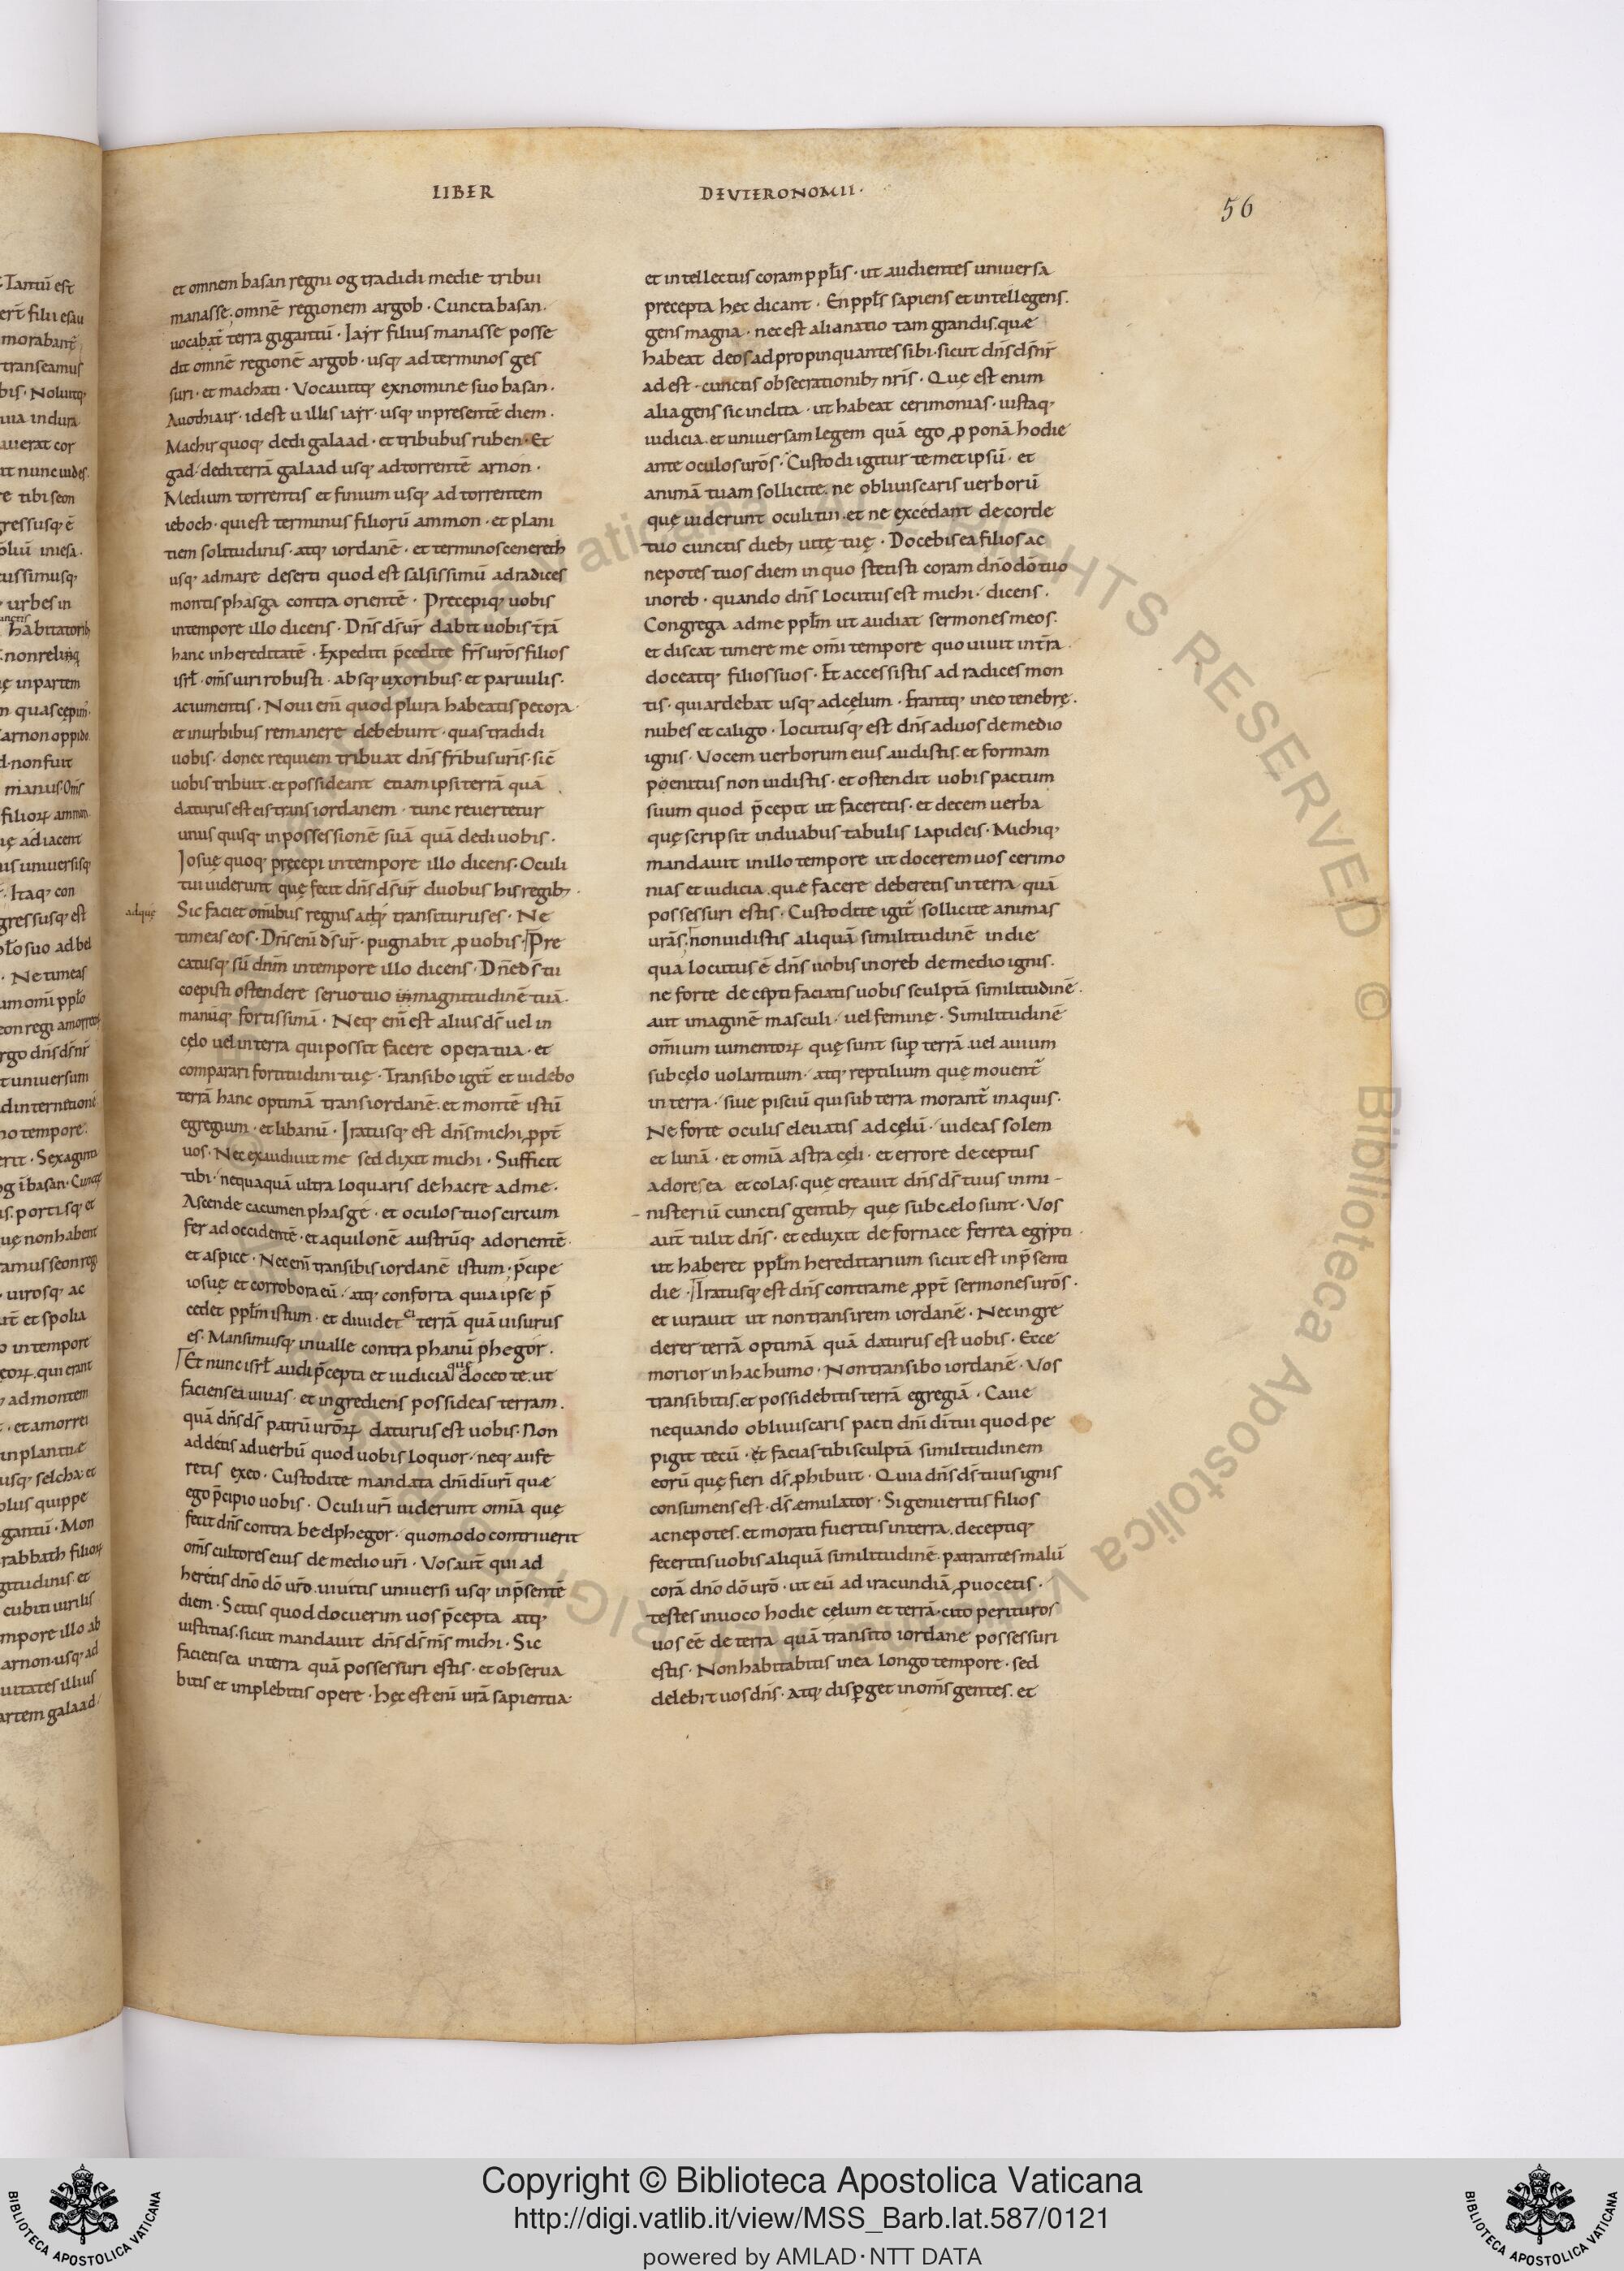 LIBER DEUTERONOMII·
56
et omnem basan regni og tradidi medie tribui
manasse· omnē regionem argob · Cuncta basan·
uocabat̄ terra gigantū · Iayr filius manasse posse
dit omnē regionē argob · usq· ad terminos ges
suri · et machati · Vocauitq· ex nomine suo basan·
Auothiair · id est uillis iayr · usq· in presentē diem ·
Machir quoq· dedi galaad · et tribubus ruben · Et
gad · dedi terrā galaad usq· ad torrentē arnon ·
Medium torrentis et finium usq· ad torrentem
ieboch · qui est terminus filiorū ammon · et plani
tiem solitudinis · atq· iordanē · et terminos cenereth
usq· ad mare deserti quod est salsissimū ad radices
montis phasga contra orientē · Precepiq· uobis
in tempore illo dicens · Dn̄s ds̄ ur̄ dabit uobis tr̄rā
hanc in hereditatē · Expediti p̄cedite fr̄s ur̄os filios
isrł · om̄s uiri robusti · absq· uxoribus · et paruulis ·
ac iumentis · Noui eni̅ quod plura habeatis pecora ·
et in urbibus remanere debebunt · quas tradidi
uobis · donec requiem tribuat dn̄s fr̄ibus ur̄is · sic̄
uobis tribuit · et possideant etiam ipsi terrā quā
daturus est eis trans iordanem · tunc reuertetur
unus quisq· in possessionē suā quā dedi uobis ·
Iosuę quoq· precepi in tempore illo dicens · Oculi
tui uiderunt quę fecit dn̄s ds̄ ur̄ duobus his regib; ·
adquę
Sic faciet om̄ibus regnis adq· transiturus es · Ne
timeas eos · Dn̄s eni̅ ds̄ ur̄ · pugnabit ꝓ uobis · Pre
catusq· sū dn̄m in tempore illo dicens · Dn̄e ds̄ tu
coepisti ostendere seruo tuo in magnitudinē tuā ·
manūq· fortissimā · Neq· eni̅ est alius ds̄ uel in
cęlo uel in terra qui possit facere opera tua · et
comparari fortitudini tuę · Transibo igit̄ et uidebo
terrā hanc optimā trans iordanē · et montē istū
egregium · et libanū · Iratusq· est dn̄s michi ꝓpt̄
uos · Nec exaudiuit me sed dixit michi · Sufficit
tibi · nequaquā ultra loquaris de hac re ad me ·
Ascende cacumen phasge · et oculos tuos circum
fer ad occidentē · et aquilonē austrūq· ad orientē ·
et aspice · Nec eni̅ transibis iordanē istum · p̄cipe
iosuę et corrobora eū · atq· conforta quia ipse p̄
cedet ppłm istum · et diuidet ei terrā quā uisurus
es · Mansimusq· in ualle contra phanū phegor ·
Et nunc isrł audi p̄cepta et iudicia quę doceo te · ut
faciens ea uiuas · et ingrediens possideas terram ·
quā dn̄s ds̄ patrū ur̄orꝝ daturus est uobis · Non
addetis ad uerbū quod uobis loquor · neq· aufe
retis ex eo · Custodite mandata dn̄i di̅ uri̅ quæ
ego p̄cipio uobis · Oculi uri̅ uiderunt omi̅a quę
fecit dn̄s contra beelphegor · quomodo contriuerit
om̄s cultores eius de medio uri̅ · Vos aut̄ qui ad
heretis dn̄o dō ur̄o · uiuitis uniuersi usq· in p̄sentē
diem · Scitis quod docuerim uos p̄cepta atq·
iustitias · sicut mandauit dn̄s ds̄ m̄s michi · Sic
facietis ea in terra quā possessuri estis · et obserua
bitis et implebitis opere · hęc est eni̅ ur̄a sapientia ·
et intellectus coram ppłis · ut audientes uniuersa
precepta hęc dicant · En ppłs sapiens et intellegens ·
gens magna · nec est alia natio tam grandis quæ
habeat deos adpropinquantes sibi · sicut dn̄s ds̄ nr̄
adest · cunctis obsecrationib; nr̄is · Quę est enim
alia gens sic inclita · ut habeat cerimonias · iustaq·
iudicia · et uniuersam legem quā ego ꝓponā hodie
ante oculos ur̄os · Custodi igitur temet ipsū · et
animā tuam sollicite · ne obliuiscaris uerborū
quę uiderunt oculi tui · et ne excedant de corde
tuo cunctis dieb; uitę tuę · Docebis ea filios ac
nepotes tuos diem in quo stetisti coram dn̄o dō tuo
in oreb · quando dn̄s locutus est michi · dicens ·
Congrega ad me ppłm ut audiat sermones meos ·
et discat timere me omi̅ tempore quo uiuit in tr̄ra ·
doceatq· filios suos · Et accessistis ad radices mon
tis · qui ardebat usq· ad cęlum · Erantq· in eo tenebrę ·
nubes et caligo · Locutusq· est dn̄s ad uos de medio
ignis · Vocem uerborum eius audistis · et formam
poenitus non uidistis · et ostendit uobis pactum
suum quod p̄cepit ut faceretis · et decem uerba
quę scripsit in duabus tabulis lapideis · Michiq·
mandauit in illo tempore ut docerem uos cerimo
nias et iudicia · quæ facere deberetis in terra quā
possessuri estis · Custodite igit̄ sollicite animas
ur̄as · non uidistis aliquā similitudinē in die
qua locutus ē dn̄s uobis in oreb de medio ignis ·
ne forte decepti faciatis uobis sculptā similitudinē ·
aut imaginē masculi · uel feminę · Similitudinē
omi̅um iumentorꝝ quę sunt sup̄ terrā · uel auium
sub cęlo uolantium · atq· reptilium quę mouent̄
in terra · siue pisciū qui sub terra morant̄ in aquis ·
Ne forte oculis eleuatis ad cęlū · uideas solem
et lunā · et omi̅a astra cęli · et errore deceptus
adores ea et colas · quę creauit dn̄s ds̄ tuus in mi-
-nisteriū cunctis gentib; quę sub cælo sunt · Vos
aut̄ tulit dn̄s · et eduxit de fornace ferrea egypti ·
ut haberet ppłm hereditarium sicut est in p̄senti
die · Iratusq· est dn̄s contra me ꝓpt̄ sermones ur̄os ·
et iurauit ut non transirem iordanē · Nec ingre
derer terrā optimā quā daturus est uobis · Ecce
morior in hac humo · Non transibo iordanē · Vos
transibitis · et possidebitis terrā egregiā · Caue
nequando obliuiscaris pacti dn̄i di̅ tui quod pe
pigit tecū · et facias tibi sculptā similitudinem
eorū quę fieri ds̄ ꝓhibuit · Quia dn̄s ds̄ tuus ignis
consumens est · ds̄ æmulator · Si genueritis filios
ac nepotes · et morati fueritis in terra · deceptiq·
feceritis uobis aliquā similitudinē · patrantes malū
corā dn̄o dō ur̄o · ut eū ad iracundiā ꝓuocetis ·
testes inuoco hodie cęlum et terrā · cito perituros
uos eē de terra quā transito iordane possessuri
estis · Non habitabitis in ea longo tempore · sed
delebit uos dn̄s · atq· disꝑget in om̄s gentes · et
Copyright © Biblioteca Apostolica Vaticana
http://digi.vatlib.it/view/MSS_Barb.lat.587/0121
powered by AMLAD·NTT DATA
BIBLIOTECA APOSTOLICA VATICANA
BIBLIOTECA APOSTOLICA VATICANA